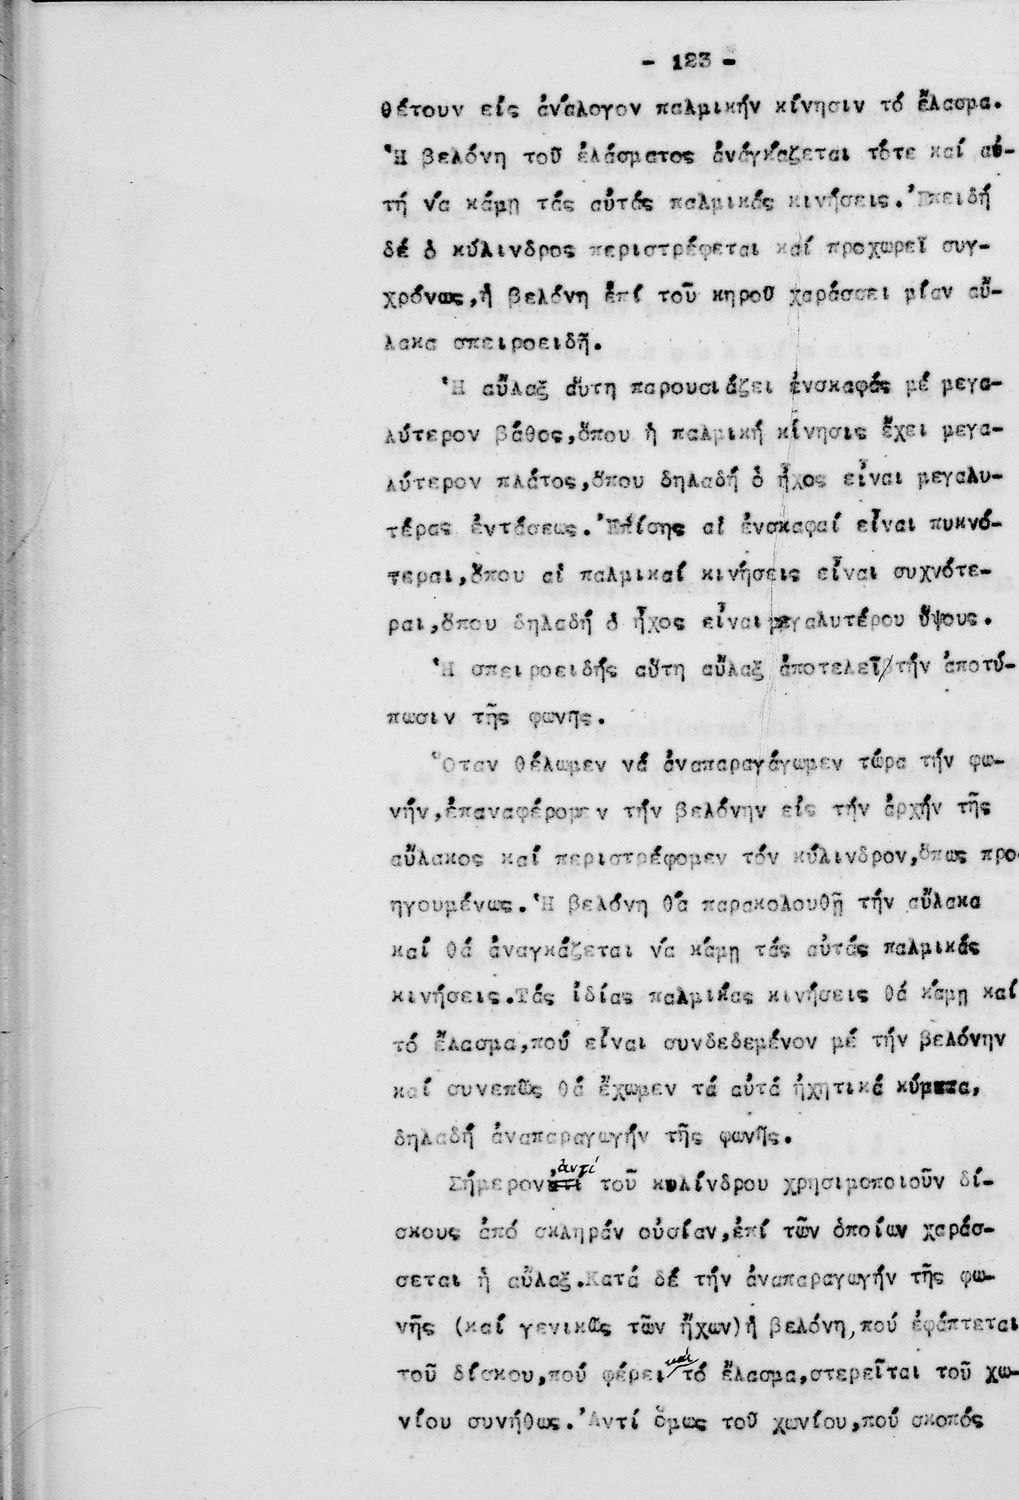 - 123 -
θέτουν εἰς ἀνάλογον παλμικήν κίνησιν τό ἔλασμα.
Ἡ βελόνη τοῦ ἐλάσματος ἀνάγκάζεται τότε καί αὐ-
τή νά κάμῃ τάς αὐτάς παλμικάς κινήσεις. Ἐπειδή
δέ ὁ κύλινδρος περιστρέφεται καί προχωρεῖ συγ-
χρόνως, ἡ βελόνη ἐπί τοῦ κηροῦ χαράσσει μίαν αὔ-
λακα σπειροειδῆ.
Ἡ αὔλαξ αὕτη παρουσιάζει ἐνσκαφάς μέ μεγα-
λύτερον βάθος, ὅπου ἡ παλμική κίνησις ἔχει μεγα-
λύτερον πλάτος, ὅπου δηλαδή ὁ ἦχος εἶναι μεγαλυ-
τέρας ἐντάσεως. Ἐπίσης αἱ ἐνσκαφαί εἶναι πυκνό-
τεραι, ὅπου αἱ παλμικαί κινήσεις εἶναι συχνότε-
ραι, ὅπου δηλαδή ὁ ἦχος εἶναι μεγαλυτέρου ὕψους.
Ἡ σπειροειδής αὕτη αὔλαξ ἀποτελεῖ τήν ἀποτύ-
πωσιν τῆς φωνῆς.
Ὅταν θέλωμεν νά ἀναπαραγάγωμεν τώρα τήν φω-
νήν, ἐπαναφέρομεν τήν βελόνην εἰς τήν ἀρχήν τῆς
αὔλακος καί περιστρέφομεν τόν κύλινδρον, ὅπως προ
ηγουμένως. Ἡ βελόνη θά παρακολουθῇ τήν αὔλακα
καί θά ἀναγκάζεται νά κάμῃ τάς αὐτάς παλμικάς
κινήσεις. Τάς ἰδίας παλμικάς κινήσεις θά κάμῃ καί
τό ἔλασμα, πού εἶναι συνδεδεμένον μέ τήν βελόνην
καί συνεπῶς θά ἔχωμεν τά αὐτά ἠχητικά κύματα,
δηλαδή ἀναπαραγωγήν τῆς φωνῆς.
Σήμερον, ἀντί τοῦ κυλίνδρου χρησιμοποιοῦν δί-
σκους ἀπό σκληράν οὐσίαν, ἐπί τῶν ὁποίων χαράσ-
σεται ἡ αὔλαξ. Κατά δέ τήν ἀναπαραγωγήν τῆς φω-
νῆς (καί γενικῶς τῶν ἤχων) ἡ βελόνη, πού ἐφάπτεται
τοῦ δίσκου, πού φέρει καί τό ἔλασμα, στερεῖται τοῦ χω-
νίου συνήθως. Ἀντί ὅμως τοῦ χωνίου, πού σκοπός